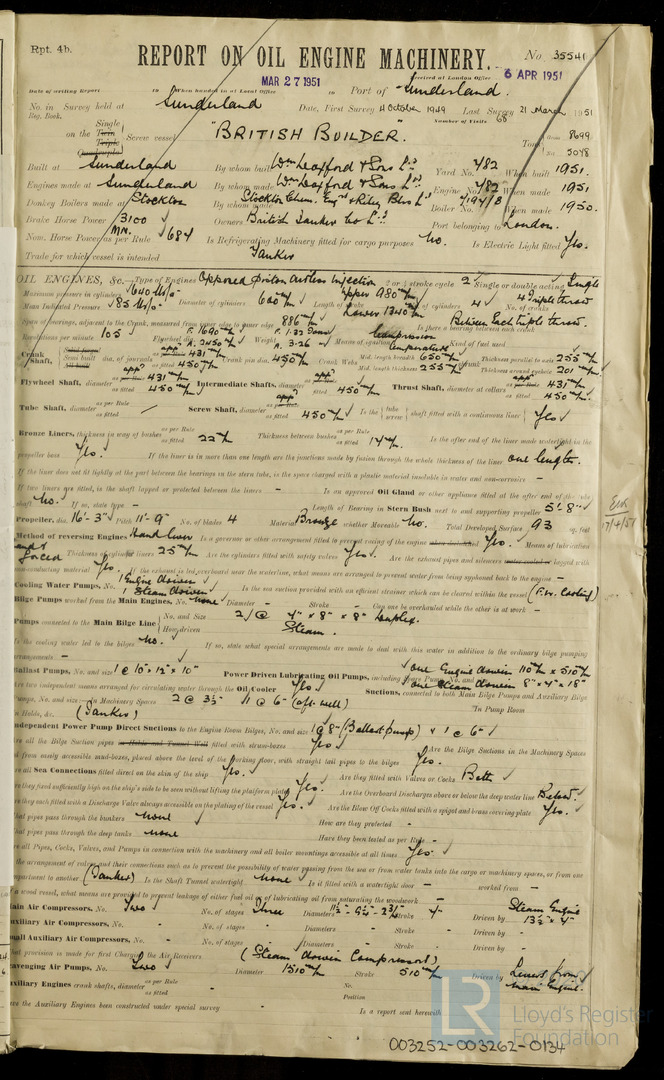 Rpt. 4b.
REPORT ON OIL ENGINE MACHINERY.
No. 35541
MAR 27 1951
Received at London Office 6 APR 1951
Date of writing Report When handed in at Local Office Port of Sunderland.
No. in Survey held at Sunderland Date, First Survey 4 October 1949 Last Survey 21 March 1951
Reg. Book. Number of Visits 68
on the Single Twin Triple Quadruple Screw vessel "BRITISH BUILDER". Tons Gross 8699 Net 5048
Built at Sunderland By whom built Wm Doxford & Sons Ld. Yard No. 782 When built 1951.
Engines made at Sunderland By whom made Wm Doxford & Sons Ld. Engine No. 782 When made 1951
Donkey Boilers made at Stockton By whom made Stockton Chem. Engrs & Riley Blrs Ld Boiler No. 7194/8 When made 1950.
Brake Horse Power 3100 Owners British Tanker Co Ld. Port belonging to London.
Nom. Horse Power as per Rule MN. 684 Is Refrigerating Machinery fitted for cargo purposes No. Is Electric Light fitted Yes.
Trade for which vessel is intended Tanker
OIL ENGINES, &c. Type of Engines Opposed piston airless injection 2 or 4 stroke cycle 2 Single or double acting Single
Maximum pressure in cylinders 640 lbs/□" Diameter of cylinders 600 m/m Length of stroke Upper 980 m/m Lower 1340 m/m No. of cylinders 4 No. of cranks 4 Triple throw
Mean Indicated Pressure 85 lbs/□"
Span of bearings, adjacent to the Crank, measured from inner edge to inner edge 886 m/m Is there a bearing between each crank Between Each triple throw.
Revolutions per minute 105 Flywheel dia. F. 1690 m/m A. 2450 m/m Weight F. 1.32 tons A. 3.26 Means of ignition Compression Kind of fuel used
Crank Shaft, dia. of journals as per Rule appd 431 m/m as fitted 450 m/m Crank pin dia. 450 m/m Crank Webs Mid. length breadth 650 m/m Mid. length thickness 255 m/m Thickness parallel to axis 255 m/m Thickness around eyehole 201 m/m
Flywheel Shaft, diameter as per Rule appd 431 m/m as fitted 450 m/m Intermediate Shafts, diameter as per Rule appd as fitted 450 m/m Thrust Shaft, diameter at collars as per Rule appd 431 m/m as fitted 450 m/m
Tube Shaft, diameter as per Rule as fitted Screw Shaft, diameter as per Rule appd as fitted 450 m/m Is the tube screw shaft fitted with a continuous liner Yes
Bronze Liners, thickness in way of bushes as per Rule as fitted 22 m/m Thickness between bushes as per Rule as fitted 14 m/m Is the after end of the liner made watertight in the
propeller boss Yes. If the liner is in more than one length are the junctions made by fusion through the whole thickness of the liner one length.
If the liner does not fit tightly at the part between the bearings in the stern tube, is the space charged with a plastic material insoluble in water and non-corrosive -
If two liners are fitted, is the shaft lapped or protected between the liners - Is an approved Oil Gland or other appliance fitted at the after end of the tube
shaft No. If so, state type - Length of Bearing in Stern Bush next to and supporting propeller 5'-8"
Propeller, dia. 16'-3" Pitch 11'-9" No. of blades 4 Material Bronze whether Moveable No. Total Developed Surface 93 sq. feet
Method of reversing Engines Hand lever Is a governor or other arrangement fitted to prevent racing of the engine when declutched Yes. Means of lubrication
Forced Thickness of cylinder liners 25 m/m Are the cylinders fitted with safety valves Yes. Are the exhaust pipes and silencers water cooled or lagged with
non-conducting material Yes. If the exhaust is led overboard near the waterline, what means are arranged to prevent water from being syphoned back to the engine -
Cooling Water Pumps, No. 1 Engine driven 1 Steam driven Is the sea suction provided with an efficient strainer which can be cleared within the vessel (F.W. Cooling)
Bilge Pumps worked from the Main Engines, No. None Diameter - Stroke - Can one be overhauled while the other is at work -
Pumps connected to the Main Bilge Line No. and Size 2 @ 4" x 8" x 8" duplex. How driven Steam.
Is the cooling water led to the bilges No. If so, state what special arrangements are made to deal with this water in addition to the ordinary bilge pumping
arrangements -
Ballast Pumps, No. and size 1 @ 10" x 12" x 10" Power Driven Lubricating Oil Pumps, including Spare Pump, No. and size one Engine driven 110 m/m x 510 m/m one steam driven 8" x 4" x 18"
Are two independent means arranged for circulating water through the Oil Cooler Yes Suctions, connected to both Main Bilge Pumps and Auxiliary Bilge
Pumps, No. and size:- In Machinery Spaces 2 @ 3½" 11 @ 6" (aft. well) In Pump Room
In Holds, &c. (Tanker)
Independent Power Pump Direct Suctions to the Engine Room Bilges, No. and size 1 @ 8" (Ballast pump) & 1 @ 6"
Are all the Bilge Suction pipes in Holds and Tunnel Well fitted with strum-boxes Yes Are the Bilge Suctions in the Machinery Spaces
led from easily accessible mud-boxes, placed above the level of the working floor, with straight tail pipes to the bilges Yes.
Are all Sea Connections fitted direct on the skin of the ship Yes. Are they fitted with Valves or Cocks Both
Are they fixed sufficiently high on the ship's side to be seen without lifting the platform plates Yes. Are the Overboard Discharges above or below the deep water line Below.
Are they each fitted with a Discharge Valve always accessible on the plating of the vessel Yes. Are the Blow Off Cocks fitted with a spigot and brass covering plate Yes.
What pipes pass through the bunkers None How are they protected -
What pipes pass through the deep tanks None Have they been tested as per Rule -
Are all Pipes, Cocks, Valves, and Pumps in connection with the machinery and all boiler mountings accessible at all times Yes.
Is the arrangement of valves and their connections such as to prevent the possibility of water passing from the sea or from water tanks into the cargo or machinery spaces, or from one
compartment to another (Tanker) Is the Shaft Tunnel watertight None Is it fitted with a watertight door - worked from -
If a wood vessel, what means are provided to prevent leakage of either fuel oil or lubricating oil from saturating the woodwork -
Main Air Compressors, No. Two No. of stages Three Diameters 11½" - 9¾" - 2¾" Stroke 4" Driven by Steam Engine 13½" x 4"
Auxiliary Air Compressors, No. - No. of stages - Diameters - Stroke - Driven by -
Small Auxiliary Air Compressors, No. - No. of stages - Diameters - Stroke - Driven by -
What provision is made for first Charging the Air Receivers (Steam driven Compressors)
Scavenging Air Pumps, No. Two Diameter 1510 m/m Stroke 510 m/m Driven by Levers from main Engine.
Auxiliary Engines crank shafts, diameter as per Rule as fitted - No. Position
Have the Auxiliary Engines been constructed under special survey - Is a report sent herewith
17/4/51
LR Lloyd's Register Foundation
003252-003262-0134